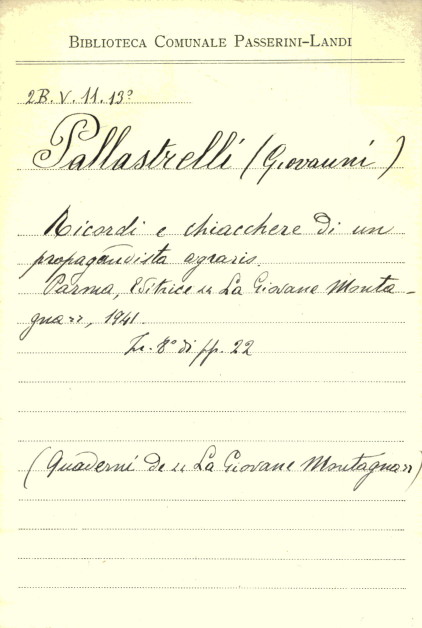 BIBLIOTECA COMUNALE PASSERINI-LANDI
2B. V. 11. 13?
Pallastrelli (Giovanni)
Ricordi e chiacchere di un
propagandista agrario.
Parma, Editrice "La Giovane Monta-
gna", 1941.
In-8° di pp. 22
(Quaderni de "La Giovane Montagna")